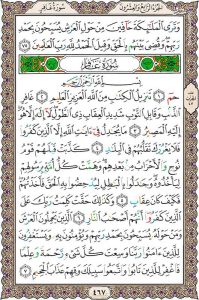 الجزء الرابع والعشرون
سورة غافر
وَتَرَى ٱلْمَلَٰٓئِكَةَ حَآفِّينَ مِنْ حَوْلِ ٱلْعَرْشِ يُسَبِّحُونَ بِحَمْدِ
رَبِّهِمْ وَقُضِىَ بَيْنَهُم بِٱلْحَقِّ وَقِيلَ ٱلْحَمْدُ لِلَّهِ رَبِّ ٱلْعَٰلَمِينَ ٧٥
سورة غافر
بِسْمِ ٱللَّهِ ٱلرَّحْمَٰنِ ٱلرَّحِيمِ
حمٓ ١ تَنزِيلُ ٱلْكِتَٰبِ مِنَ ٱللَّهِ ٱلْعَزِيزِ ٱلْعَلِيمِ ٢ غَافِرِ
ٱلذَّنۢبِ وَقَابِلِ ٱلتَّوْبِ شَدِيدِ ٱلْعِقَابِ ذِى ٱلطَّوْلِ لَآ إِلَٰهَ إِلَّا هُوَ
إِلَيْهِ ٱلْمَصِيرُ ٣ مَا يُجَٰدِلُ فِىٓ ءَايَٰتِ ٱللَّهِ إِلَّا ٱلَّذِينَ كَفَرُوا۟
فَلَا يَغْرُرْكَ تَقَلُّبُهُمْ فِى ٱلْبِلَٰدِ ٤ كَذَّبَتْ قَبْلَهُمْ قَوْمُ
نُوحٍ وَٱلْأَحْزَابُ مِنۢ بَعْدِهِمْ وَهَمَّتْ كُلُّ أُمَّةٍۭ بِرَسُولِهِمْ
لِيَأْخُذُوهُ وَجَٰدَلُوا۟ بِٱلْبَٰطِلِ لِيُدْحِضُوا۟ بِهِ ٱلْحَقَّ فَأَخَذْتُهُمْ
فَكَيْفَ كَانَ عِقَابِ ٥ وَكَذَٰلِكَ حَقَّتْ كَلِمَتُ رَبِّكَ عَلَى
ٱلَّذِينَ كَفَرُوٓا۟ أَنَّهُمْ أَصْحَٰبُ ٱلنَّارِ ٦ ٱلَّذِينَ يَحْمِلُونَ ٱلْعَرْشَ
وَمَنْ حَوْلَهُۥ يُسَبِّحُونَ بِحَمْدِ رَبِّهِمْ وَيُؤْمِنُونَ بِهِۦ وَيَسْتَغْفِرُونَ
لِلَّذِينَ ءَامَنُوا۟ رَبَّنَا وَسِعْتَ كُلَّ شَىْءٍ رَّحْمَةً وَعِلْمًا
فَٱغْفِرْ لِلَّذِينَ تَابُوا۟ وَٱتَّبَعُوا۟ سَبِيلَكَ وَقِهِمْ عَذَابَ ٱلْجَحِيمِ ٧
٤٦٧